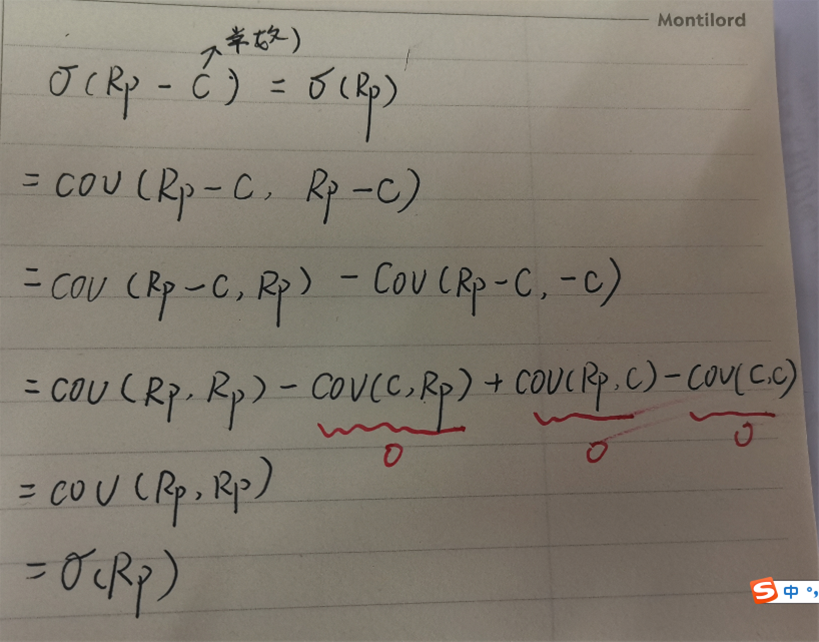 Montilord
常数)
σ(Rp - C) = σ(Rp)
= COV(Rp-C, Rp-C)
= COV (Rp-C, Rp) - COV(Rp-C, -C)
= COV(Rp, Rp) - COV(C, Rp) + COV(Rp, C) - COV(C, C)
0 0 0
= COV (Rp, Rp)
= σ(Rp)
S 中 °,